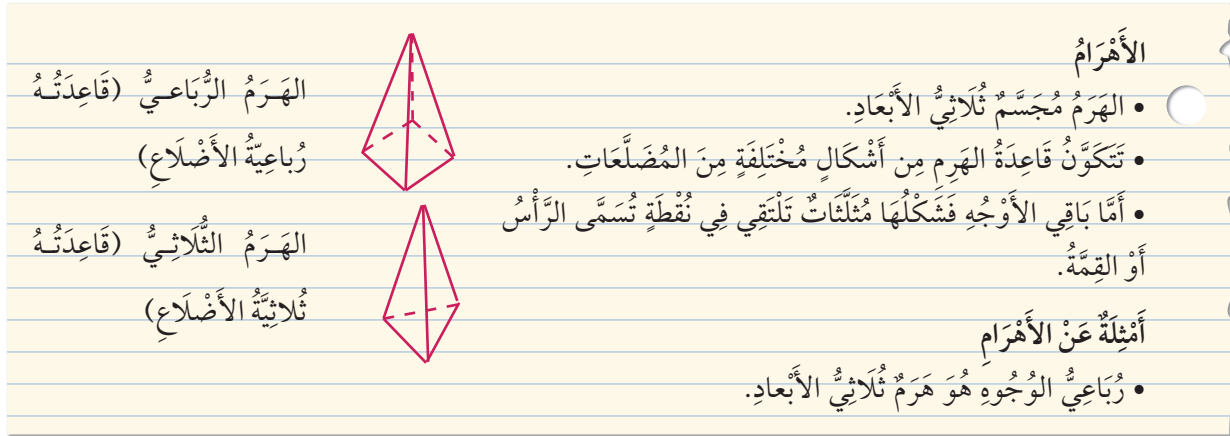 الأَهْرَامُ
• الهَرَمُ مُجَسَّمٌ ثُلَاثِيُّ الأَبْعَادِ.
• تَتَكَوَّنُ قَاعِدَةُ الهَرِمِ مِن أَشْكَالٍ مُخْتَلِفَةٍ مِنَ المُضَلَّعَاتِ.
• أَمَّا بَاقِي الأَوْجُهِ فَشَكْلُهَا مُثَلَّثَاتٌ تَلْتَقِي فِي نُقْطَةٍ تُسَمَّى الرَّأْسُ
أَوْ القِمَّةُ.
أَمْثِلَةٌ عَنْ الأَهْرَامِ
• رُبَاعِيُّ الوُجُوهِ هُوَ هَرَمٌ ثُلَاثِيُّ الأَبْعادِ.
الهَـرَمُ الرُّبَاعـيُّ (قَاعِدَتُـهُ
رُباعِيّةُ الأَضْلَاعِ)
الهَـرَمُ الثُّلَاثِـيُّ (قَاعِدَتُـهُ
ثُلاثِيَّةُ الأَضْلَاعِ)